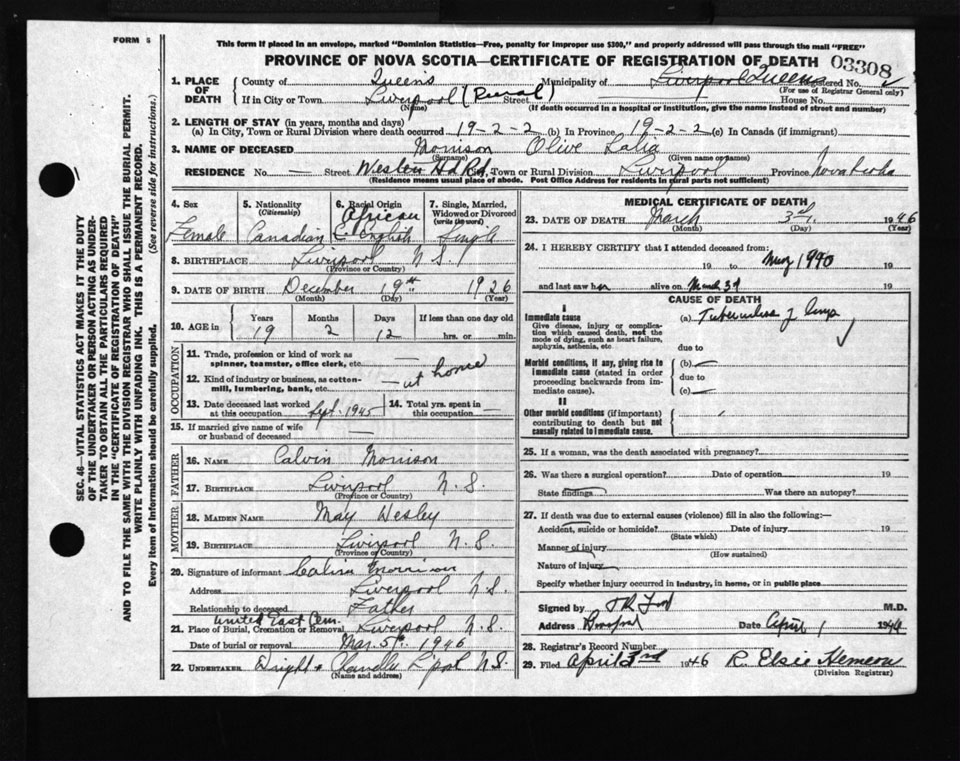 FORM 5
This form if placed in an envelope, marked "Dominion Statistics—Free, penalty for improper use $300," and properly addressed will pass through the mail "FREE"
PROVINCE OF NOVA SCOTIA—CERTIFICATE OF REGISTRATION OF DEATH 03308
1. PLACE OF DEATH County of Queens Municipality of Liverpool Queens Registered No.
(For use of Registrar General only)
If in City or Town Liverpool (Rural) Street House No.
(Name) (If death occurred in a hospital or institution, give the name instead of street and number)
2. LENGTH OF STAY (in years, months and days)
(a) In City, Town or Rural Division where death occurred 19-2-2 (b) In Province 19-2-2 (c) In Canada (if immigrant)
3. NAME OF DECEASED Morrison Olive Lalia
(Surname) (Given name or names)
RESIDENCE No. — Street Western Hd Rd, Town or Rural Division Liverpool Province Nova Scotia
(Residence means usual place of abode. Post Office Address for residents in rural parts not sufficient)
SEC. 46—VITAL STATISTICS ACT MAKES IT THE DUTY
OF THE UNDERTAKER OR PERSON ACTING AS UNDER-
TAKER TO OBTAIN ALL THE PARTICULARS REQUIRED
IN THE "CERTIFICATE OF REGISTRATION OF DEATH" AND
TO FILE THE SAME WITH THE DIVISION REGISTRAR WHO SHALL ISSUE THE BURIAL PERMIT.
WRITE PLAINLY WITH UNFADING INK. THIS IS A PERMANENT RECORD.
Every item of Information should be carefully supplied. (See reverse side for instructions.)
4. Sex 5. Nationality (Citizenship) 6. Racial Origin 7. Single, Married, Widowed or Divorced (write the word)
Female Canadian African & English Single
8. BIRTHPLACE Liverpool N.S.
(Province or Country)
9. DATE OF BIRTH December 19th 1926
(Month) (Day) (Year)
10. AGE in Years Months Days If less than one day old
19 2 12 hrs. or min.
OCCUPATION
11. Trade, profession or kind of work as spinner, teamster, office clerk, etc. —
12. Kind of industry or business, as cotton-mill, lumbering, bank, etc. — at home
13. Date deceased last worked at this occupation Sept. 1945 14. Total yrs. spent in this occupation —
15. If married give name of wife or husband of deceased —
FATHER
16. NAME Calvin Morrison
17. BIRTHPLACE Liverpool N.S.
(Province or Country)
MOTHER
18. MAIDEN NAME May Wesley
19. BIRTHPLACE Liverpool N.S.
(Province or Country)
20. Signature of informant Calvin Morrison
Address Liverpool N.S.
Relationship to deceased Father
United East Cem.
21. Place of Burial, Cremation or Removal Liverpool N.S.
Date of burial or removal Mar. 5th 1946
22. UNDERTAKER L'pool N.S.
(Name and address)
MEDICAL CERTIFICATE OF DEATH
23. DATE OF DEATH March 3rd, 1946
(Month) (Day) (Year)
24. I HEREBY CERTIFY that I attended deceased from:
19 to 1940 19
and last saw her alive on March 3rd 19
CAUSE OF DEATH
I
Immediate cause (a) Tuberculosis of lungs
Give disease, injury or complication which caused death, not the mode of dying, such as heart failure, asphyxia, asthenia, etc.
due to
Morbid conditions, if any, giving rise to immediate cause (stated in order proceeding backwards from immediate cause). (b) —
due to
(c) —
II
Other morbid conditions (if important) contributing to death but not causally related to immediate cause.
25. If a woman, was the death associated with pregnancy?
26. Was there a surgical operation? Date of operation 19
State findings Was there an autopsy?
27. If death was due to external causes (violence) fill in also the following:—
Accident, suicide or homicide? Date of injury 19
(State which)
Manner of injury
(How sustained)
Nature of injury
Specify whether injury occurred in industry, in home, or in public place
Signed by M.D.
Address Date April 1 1946
28. Registrar's Record Number
29. Filed April 3rd 1946 R. Elsie Hemeon
(Division Registrar)